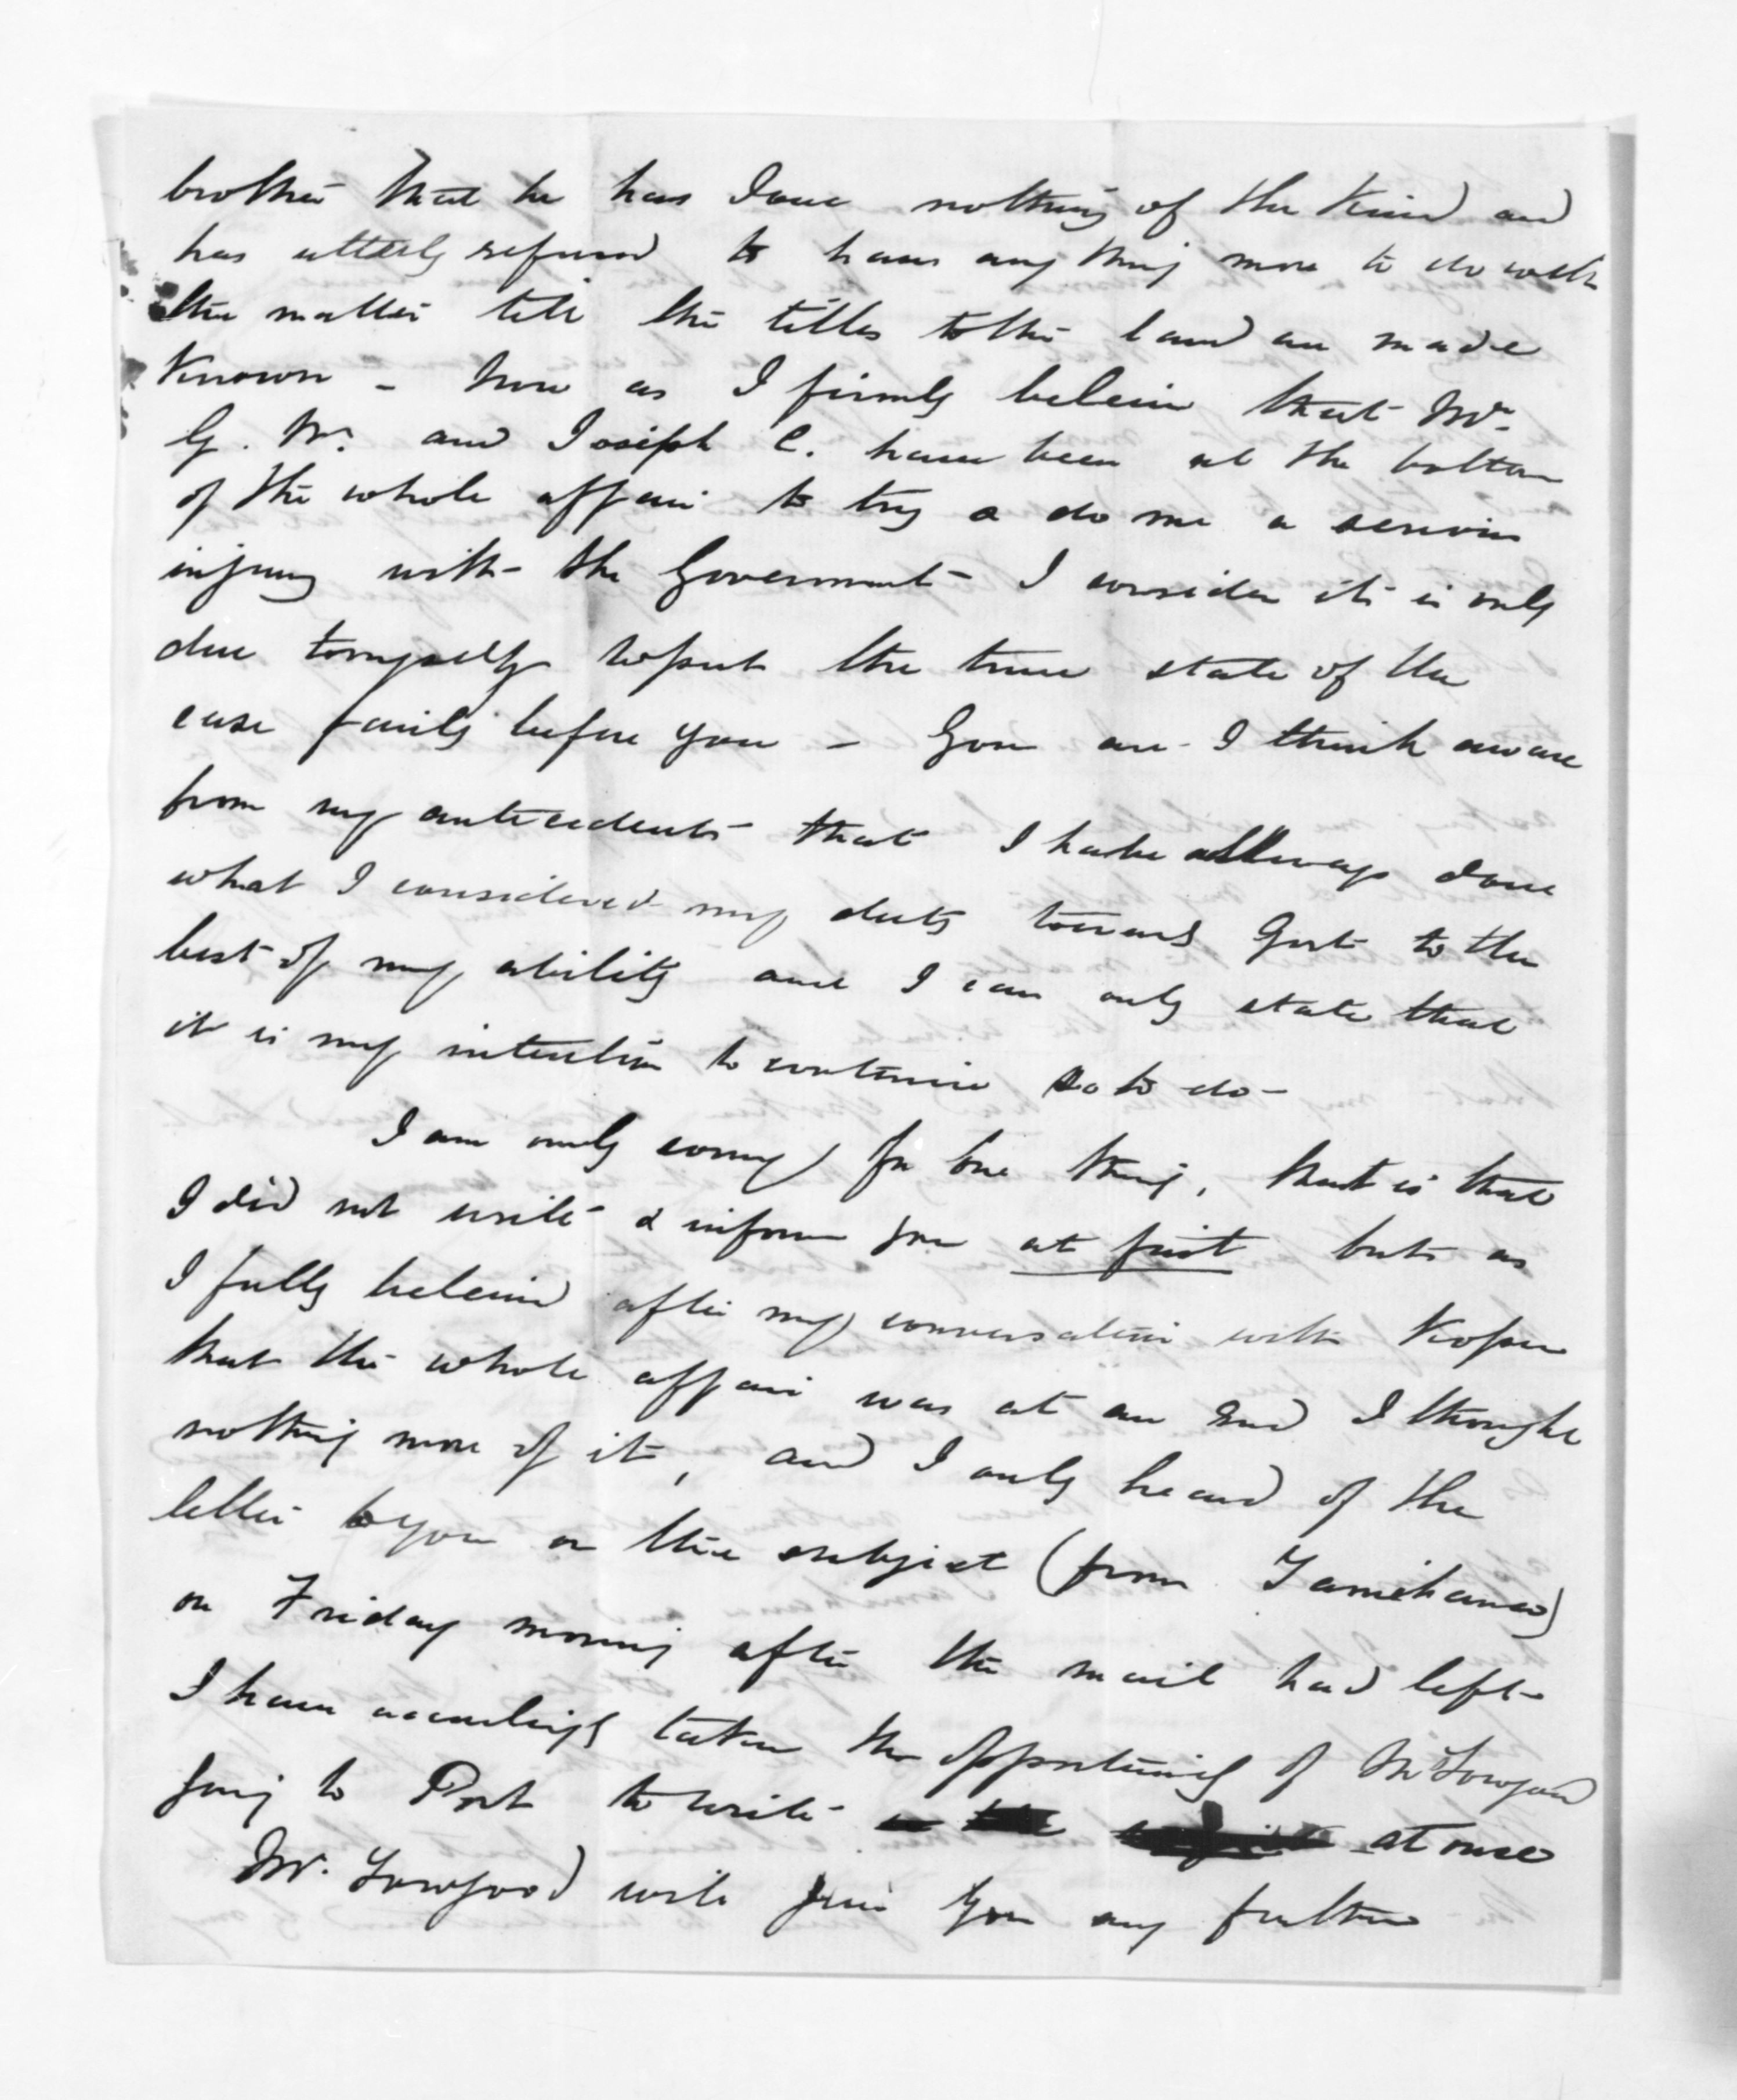 brother that he has done nothing of the kind and
has utterly refused to have any thing more to do with
the matter till the titles to the land are made
Known - Now as I firmly beleive that Mr.
G. W. and Joseph C. have been at the bottom
of the whole affair to try & do me a serious
injury with the Government I consider it is only
due to myself to put the true state of the
case fairly before you - You are I think aware
from my antecedents that I have allways done
what I considered my duty towards Govt to the
best of my ability and I can only state that
it is my intention to continue so to do -
I am only sorry for one thing, that is that
I did not write & inform you at first but as
I fully beleived after my conversation with
that the whole affair was at an end I thought
nothing more of it, and I only heard of the
letter to you on the subject (from Tamihana)
on Friday morning after the mail had left
I have accordingly taken the opportunity of Mr Lowgood
going to Port to write at once
Mr. Lowgood will give you any further